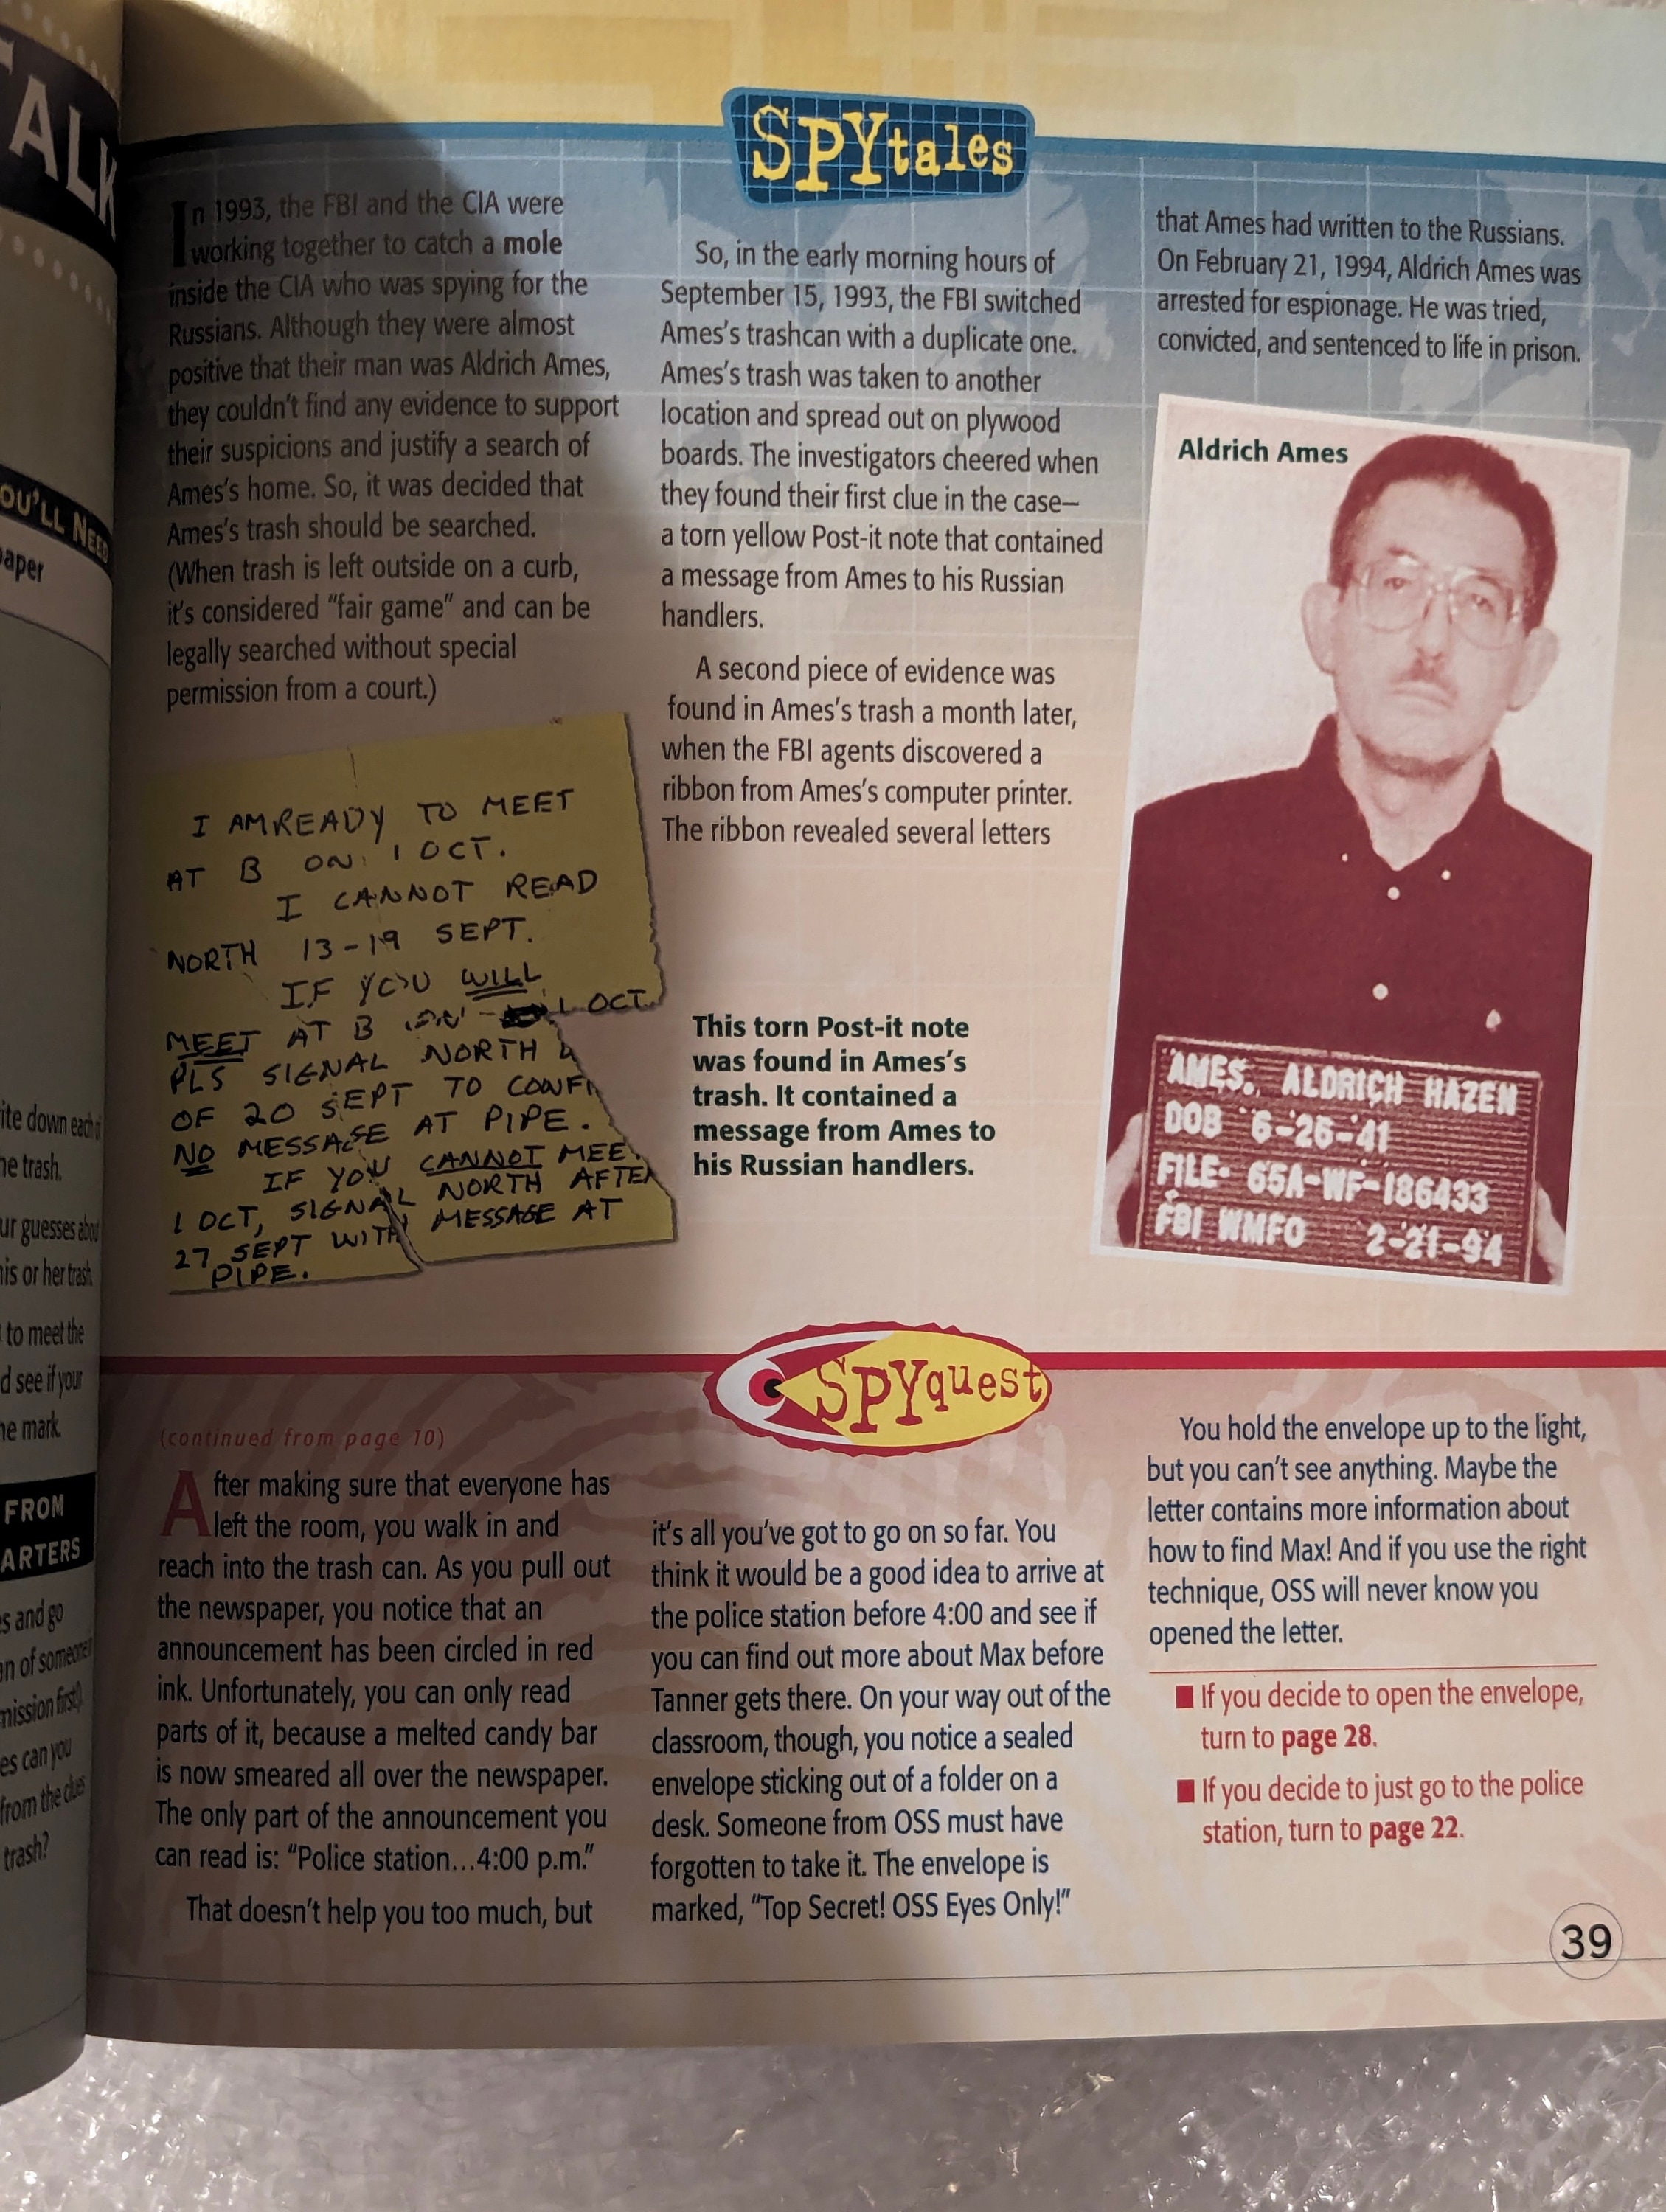 TALK
OU'LL NEED
paper
ite down each of
he trash.
ur guesses about
his or her trash.
to meet the
d see if your
he mark.
FROM
ARTERS
s and go
an of someone
mission first!)
es can you
from the clues
trash?
SPYtales
In 1993, the FBI and the CIA were
working together to catch a mole
inside the CIA who was spying for the
Russians. Although they were almost
positive that their man was Aldrich Ames,
they couldn't find any evidence to support
their suspicions and justify a search of
Ames's home. So, it was decided that
Ames's trash should be searched.
(When trash is left outside on a curb,
it's considered "fair game" and can be
legally searched without special
permission from a court.)
I AM READY TO MEET
AT B ON 1 OCT.
I CANNOT READ
NORTH 13-19 SEPT.
IF YOU WILL
MEET AT B ON 1 OCT
PLS SIGNAL NORTH
OF 20 SEPT TO CONFI
NO MESSAGE AT PIPE.
IF YOU CANNOT MEE
1 OCT, SIGNAL NORTH AFTER
27 SEPT WITH MESSAGE AT
PIPE.
So, in the early morning hours of
September 15, 1993, the FBI switched
Ames's trashcan with a duplicate one.
Ames's trash was taken to another
location and spread out on plywood
boards. The investigators cheered when
they found their first clue in the case—
a torn yellow Post-it note that contained
a message from Ames to his Russian
handlers.
A second piece of evidence was
found in Ames's trash a month later,
when the FBI agents discovered a
ribbon from Ames's computer printer.
The ribbon revealed several letters
This torn Post-it note
was found in Ames's
trash. It contained a
message from Ames to
his Russian handlers.
that Ames had written to the Russians.
On February 21, 1994, Aldrich Ames was
arrested for espionage. He was tried,
convicted, and sentenced to life in prison.
Aldrich Ames
AMES, ALDRICH HAZEN
DOB 6-26-41
FILE- 65A-WF-186433
FBI WMFO 2-21-94
SPYquest
(continued from page 10)
After making sure that everyone has
left the room, you walk in and
reach into the trash can. As you pull out
the newspaper, you notice that an
announcement has been circled in red
ink. Unfortunately, you can only read
parts of it, because a melted candy bar
is now smeared all over the newspaper.
The only part of the announcement you
can read is: "Police station...4:00 p.m."
That doesn't help you too much, but
it's all you've got to go on so far. You
think it would be a good idea to arrive at
the police station before 4:00 and see if
you can find out more about Max before
Tanner gets there. On your way out of the
classroom, though, you notice a sealed
envelope sticking out of a folder on a
desk. Someone from OSS must have
forgotten to take it. The envelope is
marked, "Top Secret! OSS Eyes Only!"
You hold the envelope up to the light,
but you can't see anything. Maybe the
letter contains more information about
how to find Max! And if you use the right
technique, OSS will never know you
opened the letter.
■ If you decide to open the envelope,
turn to page 28.
■ If you decide to just go to the police
station, turn to page 22.
39